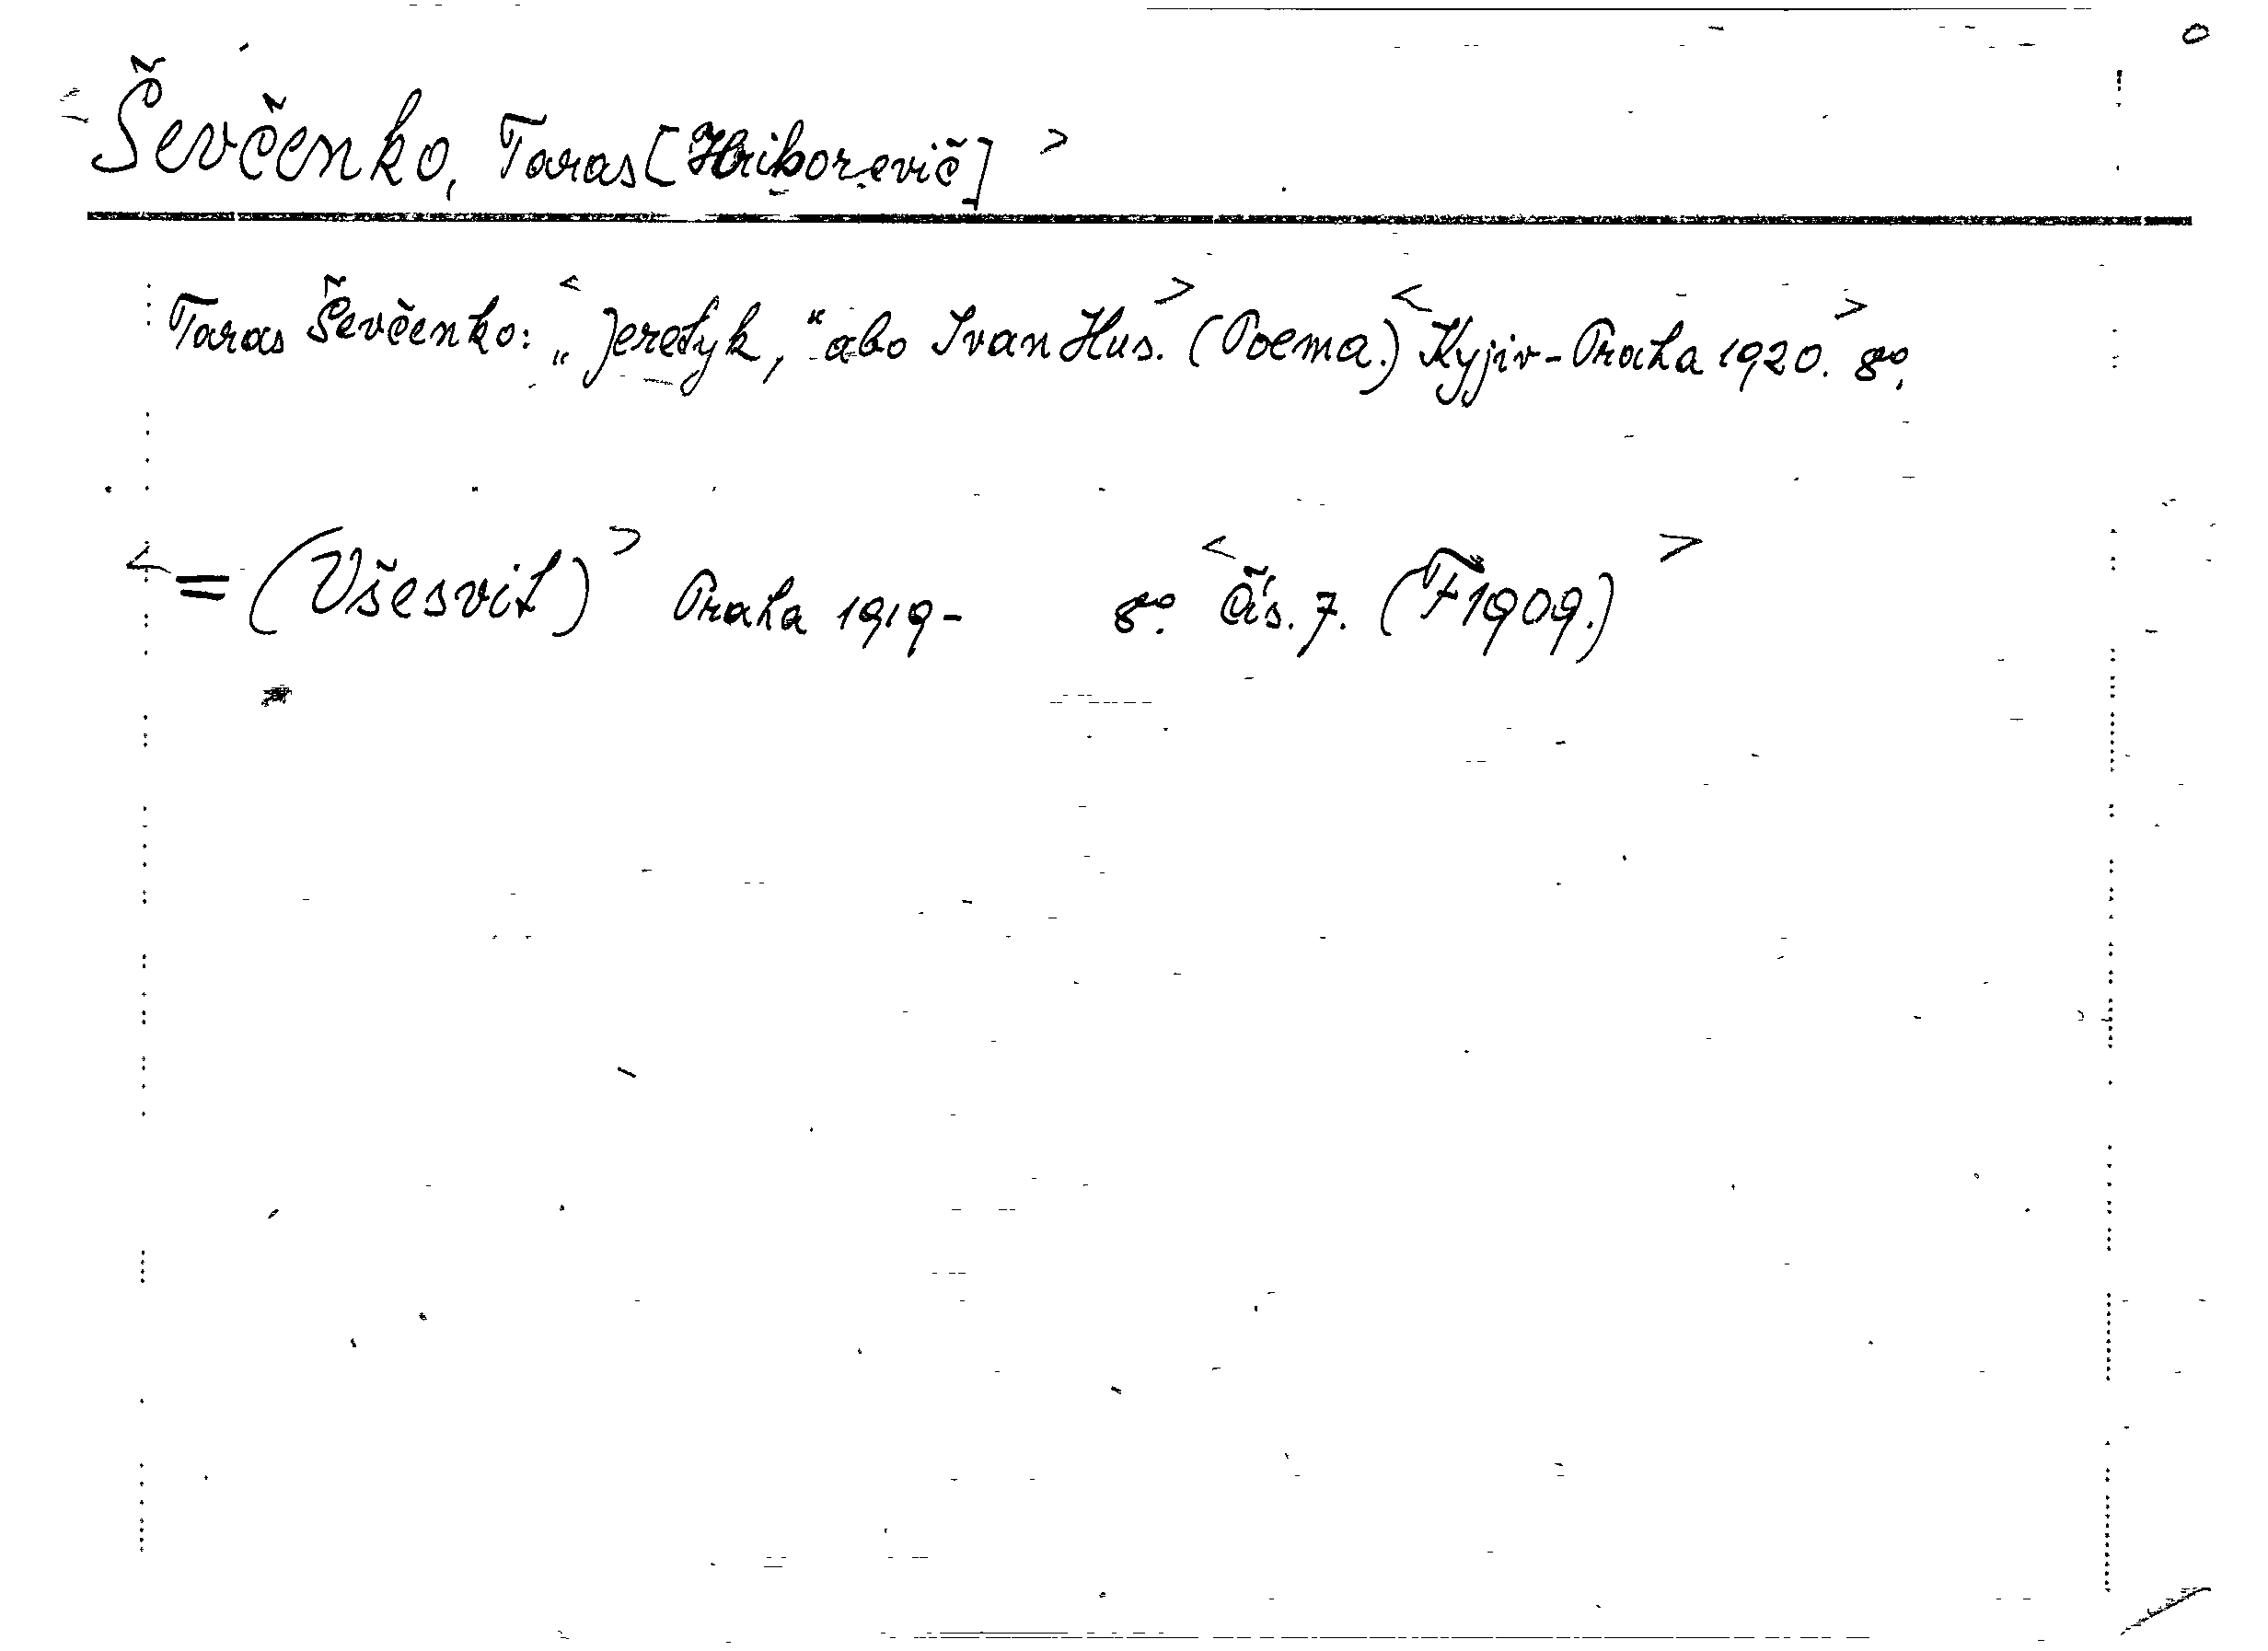 Ševčenko, Taras [Hriborevič] >
Taras Ševčenko: <„Jeretyk,“ abo Ivan Hus.> (Poema.) <Kyjiv-Praha 1920.> 8º.
< = (Všesvit) > Praha 1919- 8º. <Čís. 7. (F 1909.)>